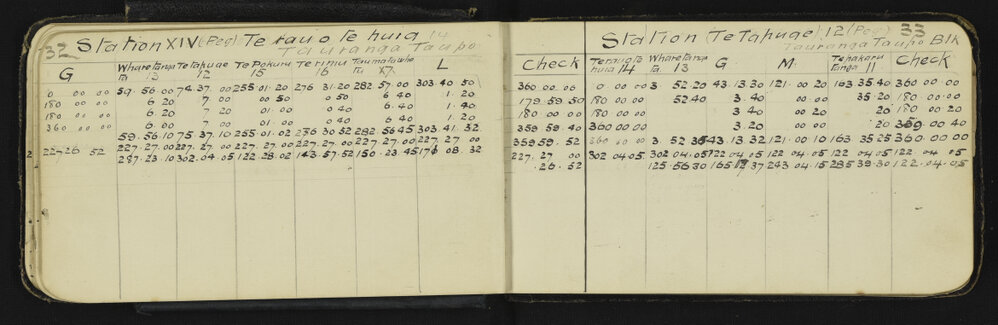 32 Station XIV (Peg) Te rau o te huia 14
Tauranga Taupo
G Wharetanga Te Tahuae Te Pokuru Te rimu L
13 12 15 16 17
0 00 00 59 56.00 74 37.00 255 01.20 276 31.20 282 57.00 303 40 50
180 00 00 6 20 7 00 0 50 0 50 6 40 1.20
180 00 00 6.20 7 00 01.00 0 40 6.40 1.40
360 00 00 6.00 7 20 01.00 0 40 6 40 1.20
59.56.10 75 37.10 255.01.02 282 56 45 303 41.32
227 26 52 227.27.00 227.27.00 227.27.00 227.27.00 227.27.00 227 27.00
287.23.10 302.04.05 122.28.02 143.57.52 150.23.45 08.32
Station (Te Tahuae) 12 (Peg) 33
Tauranga Taupo Blk
Check Te rau o te huia 14 13 G M 11 Check
360 00.00 0 00 00 3 52.20 43.13.30 121.00 20 163 35 40 360 00 00
179.59 50 180 00.00 52 40 3.40 00 35 20 180 00 00
180 00 00 180 00 00 3 40 00 20 20 180 00 20
359 59.40 360 00 00 3.20 00 20 359 00 40
359 59.52 360 00 00 3 52 35 43.13 32 121.00 10 163 35 25 360 00 00
227.27 00 302 04 05 302 04.05 122 04 05 122 04 05 122 04 05 122 04 05
.26.52 125.56 30 165 17 37 243 04 15 285 39 30 122.04.05